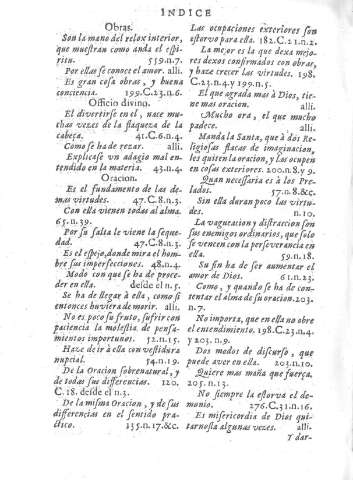 INDICE
Obras.
Son la mano del relox interior,
que muestran como anda el espi-
ritu. 559.n.7.
Por ellas se conoce el amor. alli.
Es gran cosa obras, y buena
conciencia. 199.C.23.n.6.
Officio divino.
El divertirse en el, nace mu-
chas vezes de la flaqueza de la
cabeça. 41.C.6.n.4.
Como se ha de rezar. alli.
Explicase un adagio mal en-
tendido en la materia. 43.n.4.
Oracion.
Es el fundamento de las de-
mas virtudes. 47.C.8.n.3.
Con ella vienen todas al alma.
65.n.39.
Por su falta le viene la seque-
dad. 47.C.8.n.3.
Es el espejo, donde mira el hom-
bre sus imperfecciones. 48.n.4.
Modo con que se ha de proce-
der en ella. desde el n.5.
Se ha de llegar à ella, como si
entonces huviera de morir. alli.
No es poco su fruto, sufrir con
paciencia la molestia de pensa-
mientos importunos. 52.n.15.
Hase de ir à ella con vestidura
nupcial. 54.n.19.
De la Oracion sobrenatural, y
de todas sus differencias. 120.
C.18. desde el n.3.
De la misma Oracion, y de sus
differencias en el sentido pra-
ctico. 135.n.17.&c.
Las ocupaciones exteriores son
estorvo para ella. 182.C.21.n.2.
La mejor es la que dexa mejo-
res dexos confirmados con obras,
y haze crecer las virtudes. 198.
C.23.n.4.y 199.n.5.
El que agrada mas à Dios, tie-
ne mas oracion. alli.
Mucho ora, el que mucho
padece. alli.
Manda la Santa, que à dos Re-
ligiosas flacas de imaginacion,
les quiten la oracion, y las ocupen
en cosas exteriores. 200.n.8.y 9.
Quan necessaria es à los Pre-
lados. 57.n.8.&c.
Sin ella duran poco las virtu-
des. n.10.
La vagueacion y distraccion son
sus enemigos ordinarios, que solo
se vencen con la perseverancia en
ella. 59.n.18.
Su fin ha de ser aumentar el
amor de Dios. 61.n.23.
Como, y quando se ha de con-
tentar el alma de su oracion. 203.
n.7.
No importa, que en ella no obre
el entendimiento. 198.C.23.n.4.
y 203. n.9.
Dos modos de discurso, que
puede aver en ella. 203.n.10.
Quiere mas maña que fuerça.
205. n.13.
No siempre la estorva el de-
monio. 276.C.31.n.16.
Es misericordia de Dios qui-
tarnosla algunas vezes. alli.
Y dar-